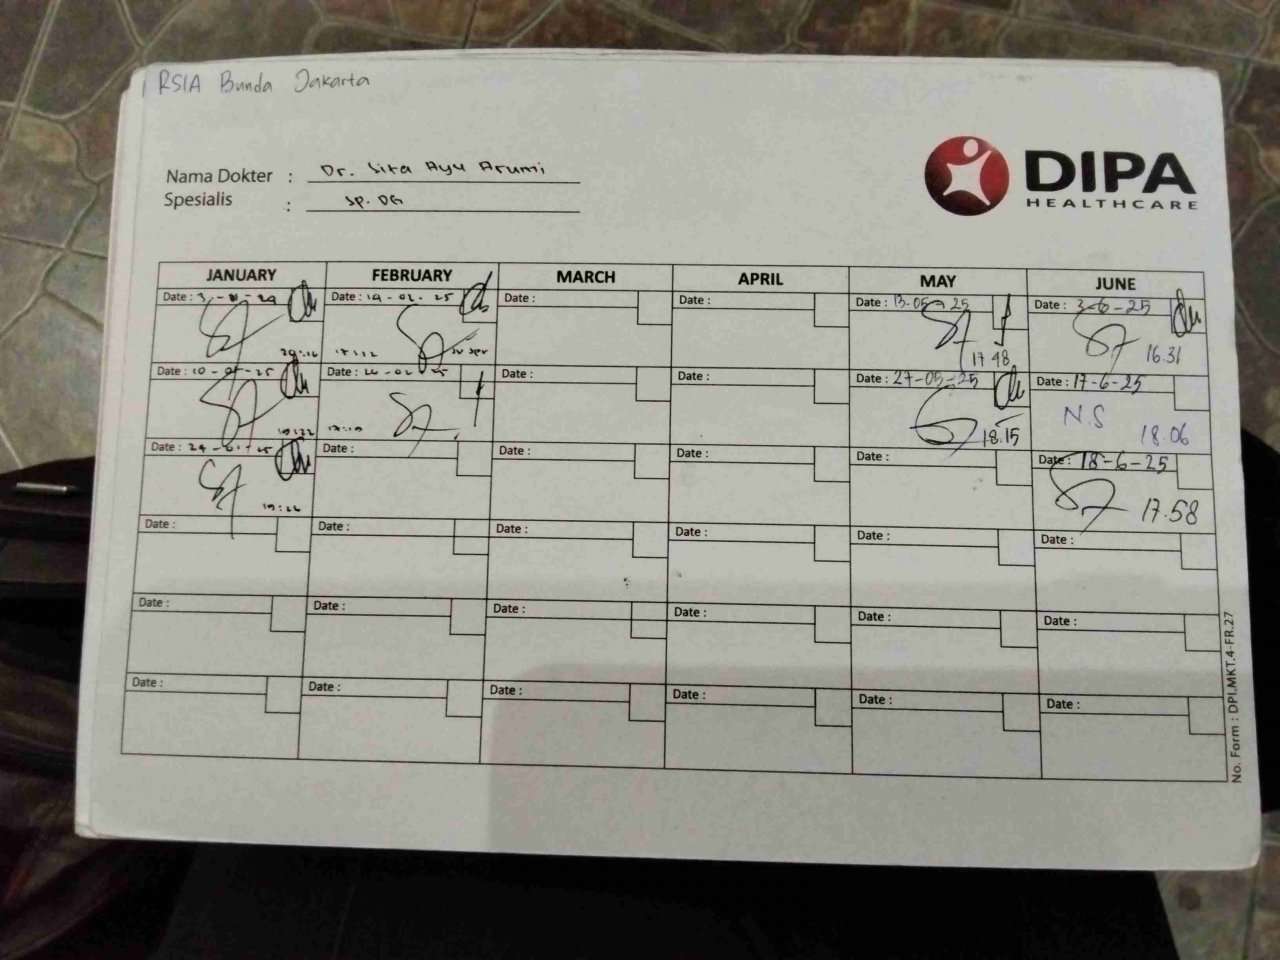 RSIA Bunda Jakarta
DIPA
HEALTHCARE
Nama Dokter : Dr. Sita Ayu Arumi
Spesialis : Sp. OG
JANUARY FEBRUARY MARCH APRIL MAY JUNE
Date : Date : 19-02-25 Date : Date : Date : 13-05-25 Date : 3-6-25
17:12 17.48 16.31
Date : 10-01-25 Date : 26-02-25 Date : Date : Date : 27-05-25 Date : 17-6-25
N.S
18.15 18.06
Date : 24-01-25 Date : Date : Date : Date : Date : 18-6-25
17.58
Date : Date : Date : Date : Date : Date :
Date : Date : Date : Date : Date : Date :
Date : Date : Date : Date : Date : Date :
No. Form : DPI.MKT.4-FR.27